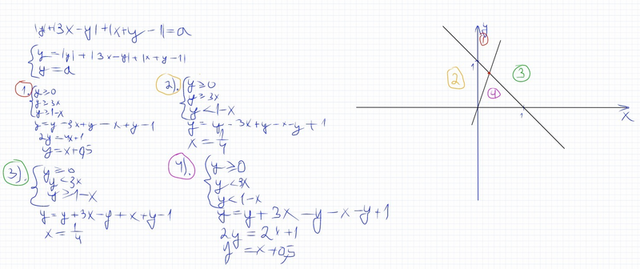 |y|+|3x-y|+|x+y-1|=a
{ y=|y|+|3x-y|+|x+y-1|
y=a
1.
{ y≥0
y≥3x
y≥1-x
y=y-3x+y-x+y-1
2y=4x+1
y=x+0,5
2).
{ y≥0
y≥3x
y<1-x
y=y-3x+y-x-y+1
x=1/4
3).
{ y≥0
y<3x
y≥1-x
y=y+3x-y+x+y-1
x=1/4
4).
{ y≥0
y<3x
y<1-x
y=y+3x-y-x-y+1
2y=2x+1
y=x+0,5
y
1
1
2
3
4
1
x